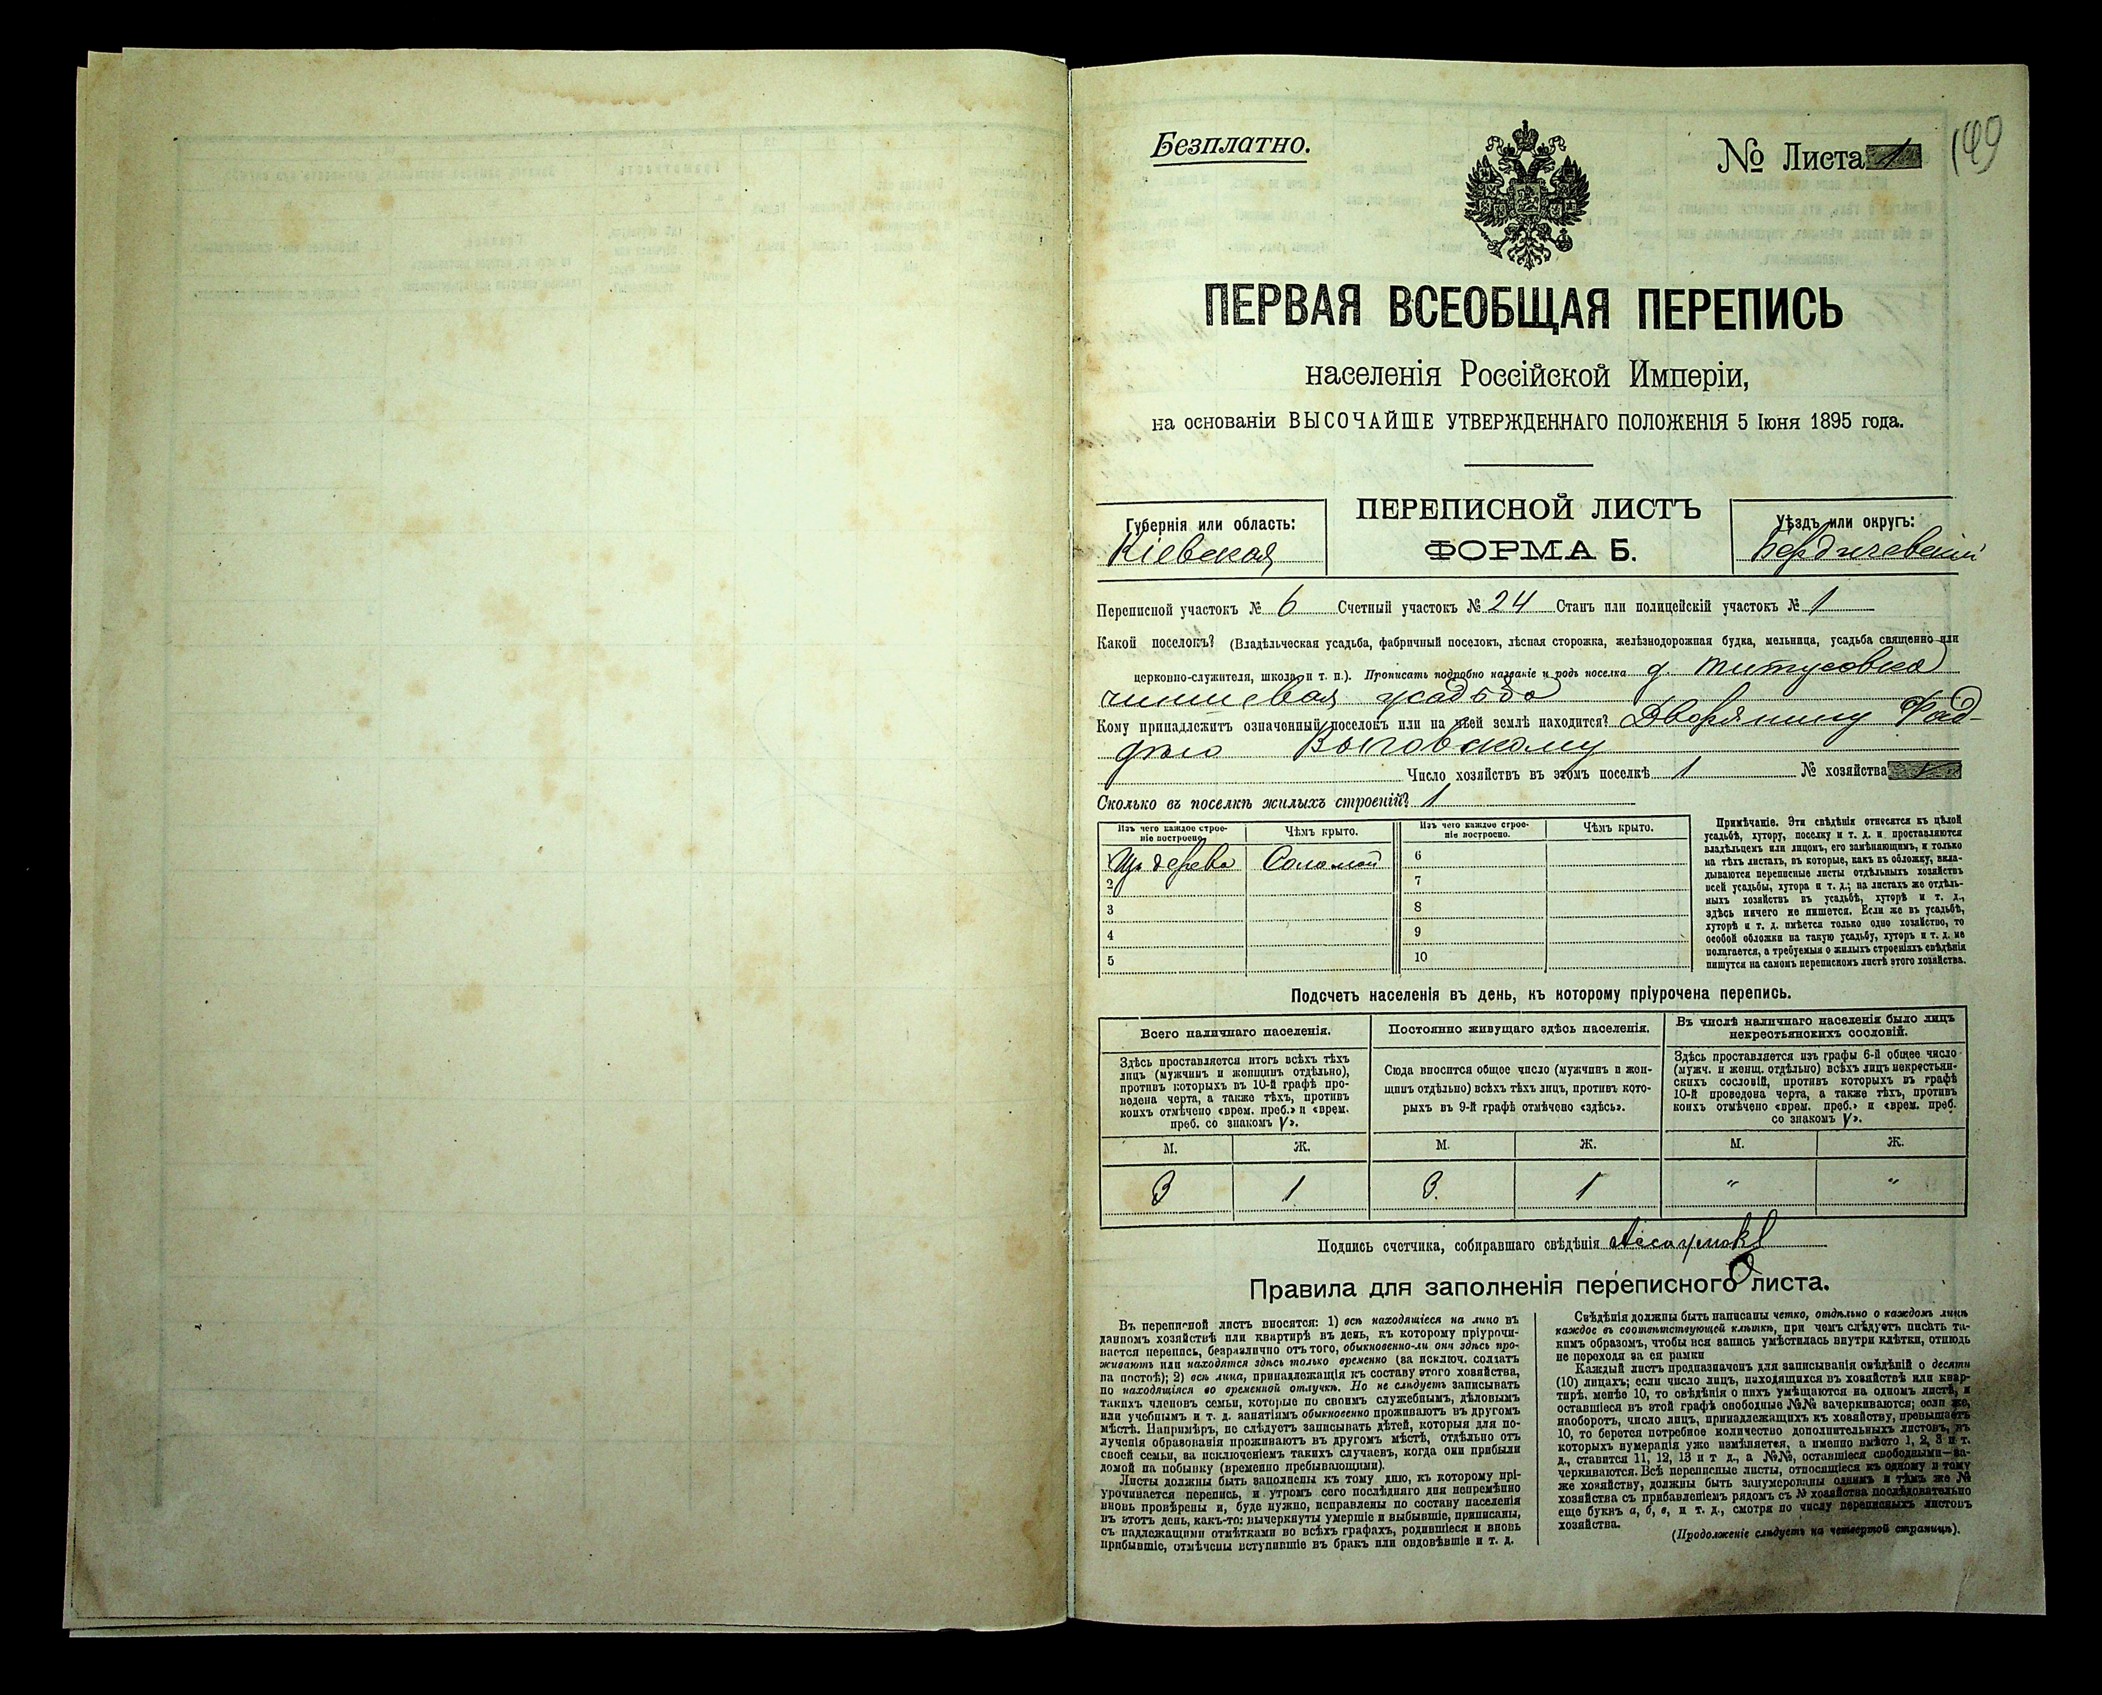 Безплатно.
№ Листа 1
149
ПЕРВАЯ ВСЕОБЩАЯ ПЕРЕПИСЬ
населенія Россійской Имперіи,
на основаніи ВЫСОЧАЙШЕ УТВЕРЖДЕННАГО ПОЛОЖЕНІЯ 5 Іюня 1895 года.
Губернія или область:
Кіевская
ПЕРЕПИСНОЙ ЛИСТЪ
ФОРМА Б.
Уѣздъ или округъ:
Бердичевскій
Переписной участокъ № 6 Счетный участокъ № 24 Станъ или полицейскій участокъ № 1
Какой поселокъ? (Владѣльческая усадьба, фабричный поселокъ, лѣсная сторожка, желѣзнодорожная будка, мельница, усадьба священно или
церковно-служителя, школа и т. п.). Прописать подробно названіе и родъ поселка д. Титусовка
чиншевая усадьба
Кому принадлежитъ означенный поселокъ или на чьей землѣ находится? Дворянину Фад-
дѣю Выговскому
Число хозяйствъ въ этомъ поселкѣ 1 № хозяйства
Сколько въ поселкѣ жилыхъ строеній? 1
Изъ чего каждое строе-
ніе построено.
Чѣмъ крыто.
Изъ чего каждое строе-
ніе построено.
Чѣмъ крыто.
1 Изъ дерева Соломой
2
3
4
5
6
7
8
9
10
Примѣчаніе. Эти свѣдѣнія относятся къ цѣлой
усадьбѣ, хутору, поселку и т. д. и проставляются
владѣльцемъ или лицомъ, его замѣняющимъ, и только
на тѣхъ листахъ, въ которые, какъ въ обложку, вкла-
дываются переписные листы отдѣльныхъ хозяйствъ
всей усадьбы, хутора и т. д.; на листахъ же отдѣль-
ныхъ хозяйствъ въ усадьбѣ, хуторѣ и т. д.,
здѣсь ничего не пишется. Если же въ усадьбѣ,
хуторѣ и т. д. имѣется только одно хозяйство, то
особой обложки на такую усадьбу, хуторъ и т. д. не
полагается, а требуемыя о жилыхъ строеніяхъ свѣдѣнія
пишутся на самомъ переписномъ листѣ этого хозяйства.
Подсчетъ населенія въ день, къ которому пріурочена перепись.
Всего наличнаго населенія.
Здѣсь проставляется итогъ всѣхъ тѣхъ
лицъ (мужчинъ и женщинъ отдѣльно),
противъ которыхъ въ 10-й графѣ про-
ведена черта, а также тѣхъ, противъ
коихъ отмѣчено «врем. преб.» и «врем.
преб. со знакомъ V».
Постоянно живущаго здѣсь населенія.
Сюда вносится общее число (мужчинъ и жен-
щинъ отдѣльно) всѣхъ тѣхъ лицъ, противъ кото-
рыхъ въ 9-й графѣ отмѣчено «здѣсь».
Въ числѣ наличнаго населенія было лицъ
некрестьянскихъ сословій.
Здѣсь проставляется изъ графы 6-й общее число
(мужч. и женщ. отдѣльно) всѣхъ лицъ некрестьян-
скихъ сословій, противъ которыхъ въ графѣ
10-й проведена черта, а также тѣхъ, противъ
коихъ отмѣчено «врем. преб.» и «врем. преб.
со знакомъ V».
М. Ж. М. Ж. М. Ж.
3 1 3. 1 " "
Подпись счетчика, собиравшаго свѣдѣнія
Правила для заполненія переписного листа.
Въ переписной листъ вносятся: 1) всѣ находящіеся на лицо въ
данномъ хозяйствѣ или квартирѣ въ день, къ которому пріурочи-
вается перепись, безразлично отъ того, обыкновенно-ли они здѣсь про-
живаютъ или находятся здѣсь только временно (за исключ. солдатъ
на постоѣ); 2) всѣ лица, принадлежащія къ составу этого хозяйства,
но находящіяся во временной отлучкѣ. Но не слѣдуетъ записывать
такихъ членовъ семьи, которые по своимъ служебнымъ, дѣловымъ
или учебнымъ и т. д. занятіямъ обыкновенно проживаютъ въ другомъ
мѣстѣ. Напримѣръ, не слѣдуетъ записывать дѣтей, которыя для по-
лученія образованія проживаютъ въ другомъ мѣстѣ, отдѣльно отъ
своей семьи, за исключеніемъ такихъ случаевъ, когда они прибыли
домой на побывку (временно пребывающими).
Листы должны быть заполнены къ тому дню, къ которому прі-
урочивается перепись, и утромъ сего послѣдняго дня непремѣнно
вновь провѣрены и, буде нужно, исправлены по составу населенія
въ этотъ день, какъ-то: вычеркнуты умершіе и выбывшіе, приписаны,
съ надлежащими отмѣтками во всѣхъ графахъ, родившіеся и вновь
прибывшіе, отмѣчены вступившіе въ бракъ или овдовѣвшіе и т. д.
Свѣдѣнія должны быть написаны четко, отдѣльно о каждомъ лицѣ
каждое въ соотвѣтствующей клѣткѣ, при чемъ слѣдуетъ писать та-
кимъ образомъ, чтобы вся запись умѣстилась внутри клѣтки, отнюдь
не переходя за ея рамки
Каждый листъ предназначенъ для записыванія свѣдѣній о десяти
(10) лицахъ; если число лицъ, находящихся въ хозяйствѣ или квар-
тирѣ, менѣе 10, то свѣдѣнія о нихъ умѣщаются на одномъ листѣ, и
оставшіеся въ этой графѣ свободные №№ вачеркиваются; если же,
наоборотъ, число лицъ, принадлежащихъ къ хозяйству, превышаетъ
10, то берется потребное количество дополнительныхъ листовъ, въ
которыхъ нумерація уже измѣняется, а именно вмѣсто 1, 2, 3 и т.
д., ставится 11, 12, 13 и т д., а №№, оставшіеся свободными—за-
черкиваются. Всѣ переписные листы, относящіеся къ одному и тому
же хозяйству, должны быть занумерованы однимъ и тѣмъ же №
хозяйства съ прибавленіемъ рядомъ съ № хозяйства послѣдовательно
еще буквъ а, б, в, и т. д., смотря по числу переписныхъ листовъ
хозяйства.
(Продолженіе слѣдуетъ на четвертой страницѣ).